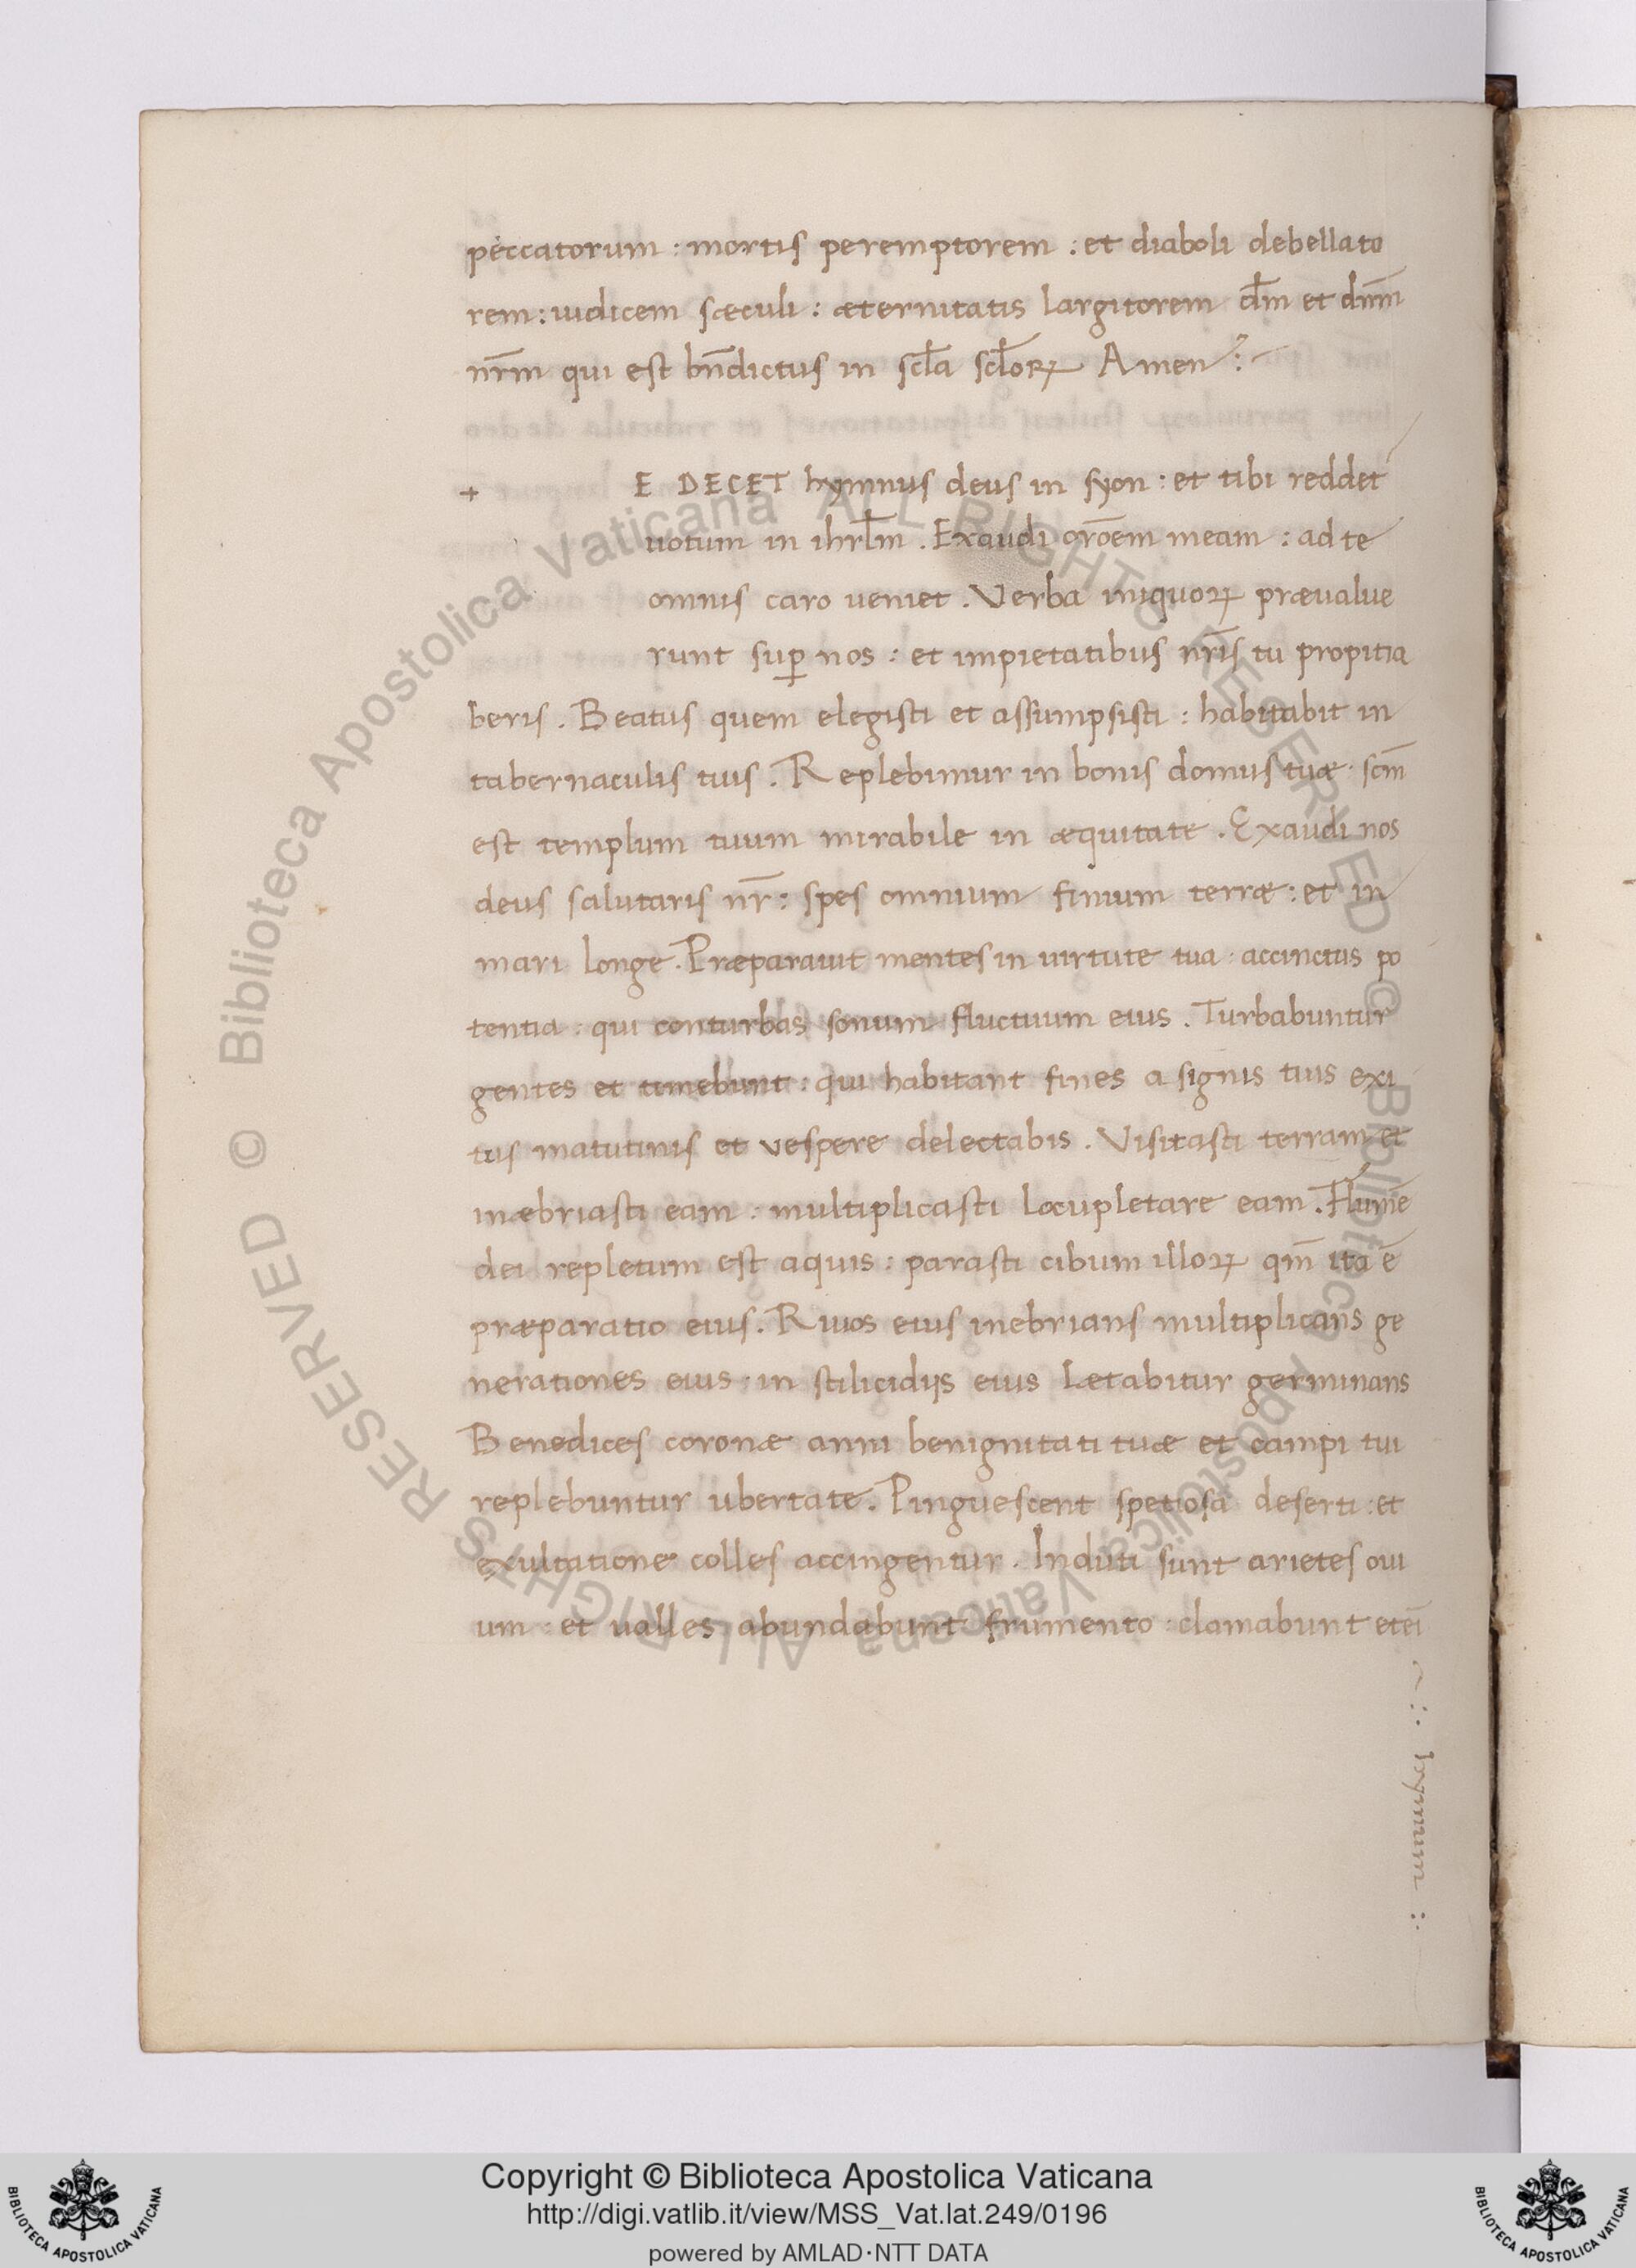 peccatorum : mortis peremptorem : et diaboli debellato
rem : iudicem sæculi : æternitatis largitorem dm̄ et dnm̄
nrm̄ qui est bn̄dictus in scl̄a scl̄oꝝ Amen :
+ E DECET hymnus deus in syon : et tibi reddet
uotum in ihrl̄m . Exaudi orōem meam : ad te
omnis caro ueniet . Verba iniquoꝝ præualue
runt suꝑ nos : et impietatibus nr̄is tu propitia
beris . Beatus quem elegisti et assumpsisti : habitabit in
tabernaculis tuis . Replebimur in bonis domus tuæ · scm̄
est templum tuum mirabile in æquitate . Exaudi nos
deus salutaris nr̄ : spes omnium finium terræ : et in
mari longe . Præparauit mentes in uirtute tua : accinctus po
tentia : qui conturbas sonum fluctuum eius . Turbabuntur
gentes et timebunt : qui habitant fines a signis tuis exi
tus matutinis et vespere delectabis . Visitasti terram et
inæbriasti eam : multiplicasti locupletare eam . Flumē
dei repletum est aquis : parasti cibum illoꝝ qm̄ ita ē
præparatio eius . Riuos eius inebrians multiplicans ge
nerationes eius : in stilicidijs eius lætabitur germinans
Benedices coronæ anni benignitati tuæ et campi tui
replebuntur ubertate . Pinguescent spetiosa deserti : et
exultatione colles accingentur . Induti sunt arietes oui
um : et ualles abundabunt frumento : clamabunt eteī
~ : . hymnum :
© Biblioteca Apostolica Vaticana ALL RIGHTS RESERVED © Biblioteca Apostolica Vaticana ALL RIGHTS RESERVED
Copyright © Biblioteca Apostolica Vaticana
http://digi.vatlib.it/view/MSS_Vat.lat.249/0196
powered by AMLAD·NTT DATA
BIBLIOTECA APOSTOLICA VATICANA
BIBLIOTECA APOSTOLICA VATICANA